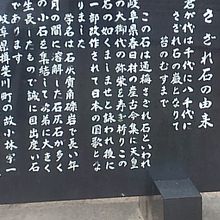 さざれ石の由来
君が代は千代に八千代に
さざれ石の巌となりて
苔のむすまで
この石は通称さざれ石といわれ
岐阜県春日村産古今集に天皇
の大御代の弥栄を寿ぎ祈りこの
石の如くませと詠われ後に
一部改作されて日本の国歌とな
りました
学名は石灰質角礫岩で長い年
月の間に溶解した石灰石が多く
の小石を集結して次第に大きく
生長したもので誠に目出度い石
であります
岐阜県揖斐川町の故小林宗一